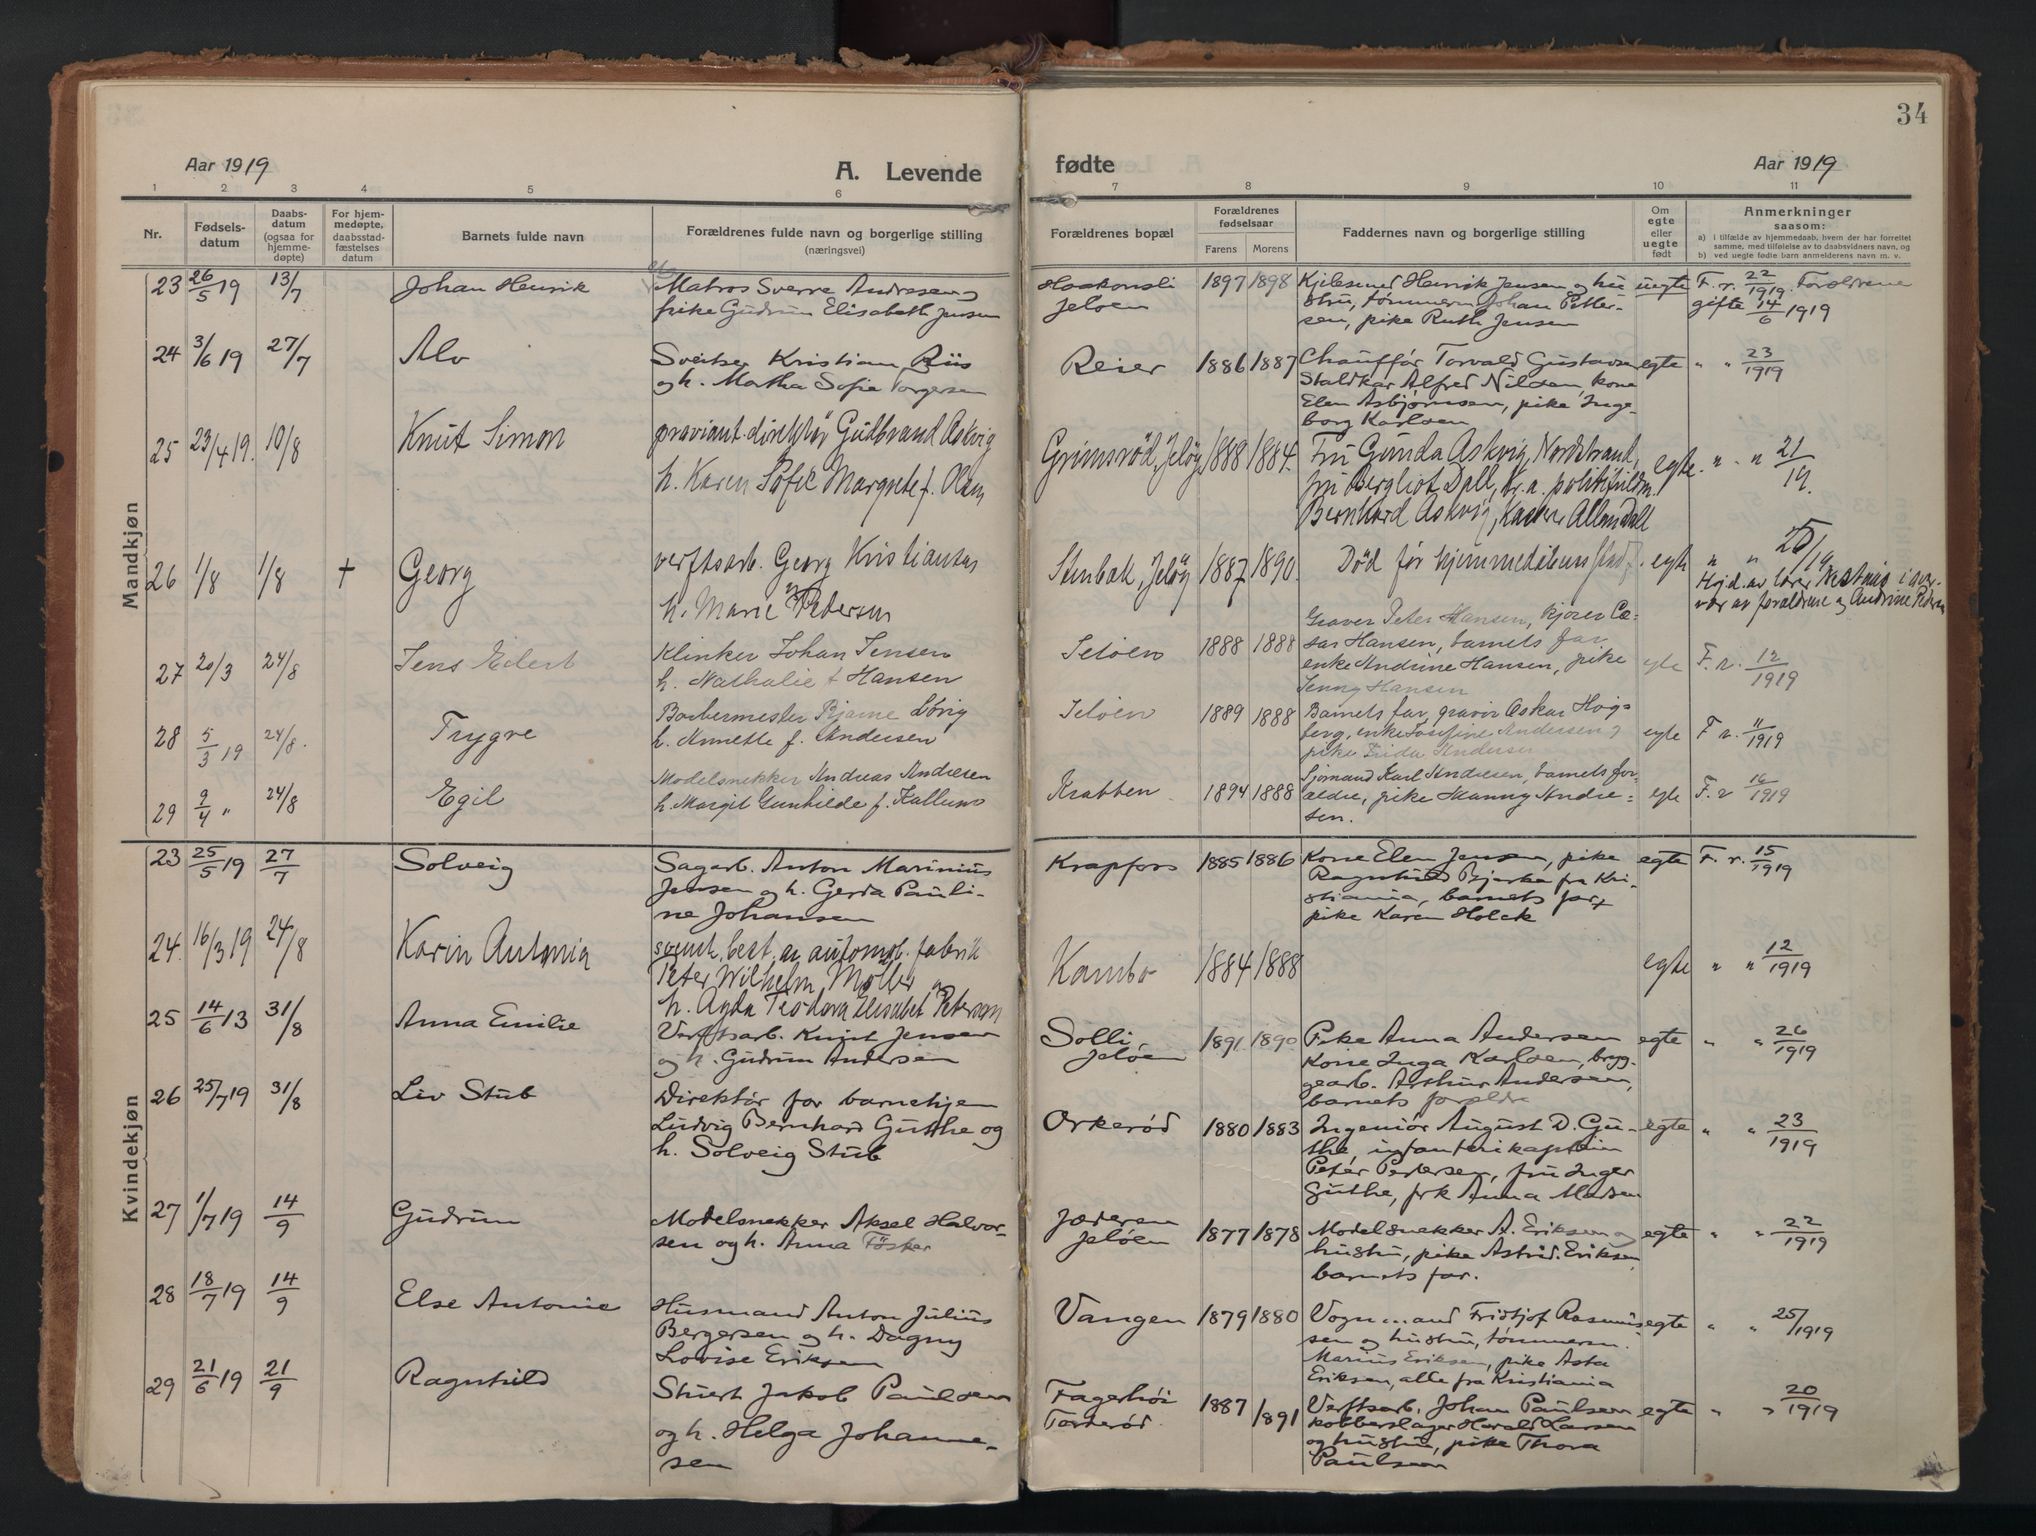 34
Aar 1919
A. Levende fødte
Aar 1919
1 2 3 4 5 6 7 8 9 10 11
Nr.
Fødsels-
datum
Daabs-
datum
(ogsaa for
hjemme-
døpte)
For hjem-
medøpte,
daabsstad-
fæstelses
datum
Barnets fulde navn
Forældrenes fulde navn og borgerlige stilling
(næringsvei)
Forældrenes bopæl
Forældrenes
fødselsaar
Farens Morens
Faddernes navn og borgerlige stilling
Om
egte
eller
uegte
født
Anmerkninger
saasom:
a) i tilfælde av hjemmedaab, hvem der har forrettet
samme, med tilføielse av to daabsvidners navn, og
b) ved uegte fødte barn anmelderens navn m. v.
Mandkjøn
23 26/5 19 13/7 Johan Henrik
Matros Sverre Andresen
pike Gudrun Elisabeth Jensen
Haakonsli
Jeløen
1897 1898
Henrik Jensen og hu
stru, tømmerm Johan Petter-
sen, pike Ruth Jensen
uegte
F. r. 22/1919. Forældrene
gifte 14/6 1919
24 3/6 19 27/7 Alv
Sveitser Kristian Riis
og h. Martha Sofie Torgersen
Reier
1886 1887
Chauffør Torvald Gustavsen
Staldkar Alfred Nilsen, kone
Elen Asbjørnsen, pike Inge-
borg Karlsen
egte
" " 23/1919
25 23/4 19. 10/8 Knut Simon
proviant.direktør Gudbrand Askvig
h. Karen Sofie Margrete f. Olsen
Grimsrød, Jeløy
1888 1884.
Fru Gunda Askvig, Nordstrand,
fru Bergliot Dall, kr.a. politifuldm.
Bernhard Askvig, Allan Dall
egte.
" " 21/19.
26 1/8 1/8 + Georg
verftsarb. Georg Kristiansen
h. Marie Petersen
Stenbæk, Jeløy
1887 1890.
Død før hjemmedåbens stadf.
egte
" " 25/19
Hjd. av lærer i over-
vær av forældrene og Andrine Pedersen
27 20/3 24/8 Jens Edert
Klinker Johan Jensen
h. Nathalie f Hansen
Jeløen
1888 1888
Graver Peter Hansen, kjører Ca-
sar Hansen, barnets far,
enke Andrine Hansen, pike
Jenny Hansen
egte
F. r. 12/1919
28 5/3 19 24/8. Trygve
Barbermester Bjarne Løvig
h. Annette f. Andersen
Jeløen
1889 1888
Barnets far, gravør Oskar Høg-
berg, enke Josefine Andersen og
pike Frida Andersen
egte
F r. 11/1919
29 9/4 " 24/8 Egil
Modelsnekker Andreas Andresen
h. Margit Gunhilde f. Kallum
Krabben
1894 1888
Sjømand Karl Andresen, barnets for-
ældre, pike Manny Andre-
sen.
egte
F. r 16/1919
Kvindekjøn
23 25/5 19 27/7 Solveig
Sagarb. Anton Marinius
Jensen og h. Gerda Pauli-
ne Johansen
Krapfors
1885 1886
Kone Elen Jensen, pike
Ragnhild Bjerke fra Kri-
stiania, barnets far,
pike Karen Holck
egte
F. r. 15/1919
24. 16/3 19 24/8 Karin Antonia
best. av automob. fabrik
Peter Wilhelm Møller og
h. Agda Teodora Elisabet Peterson
Kambo
1884 1888
egte
" " 12/1919
25 14/6 13 31/8 Anna Emilie
Verftsarb. Knut Jensen
og h. Gudrun Andersen
Solli,
Jeløen
1891 1890
Pike Anna Andersen
Kone Inga Karlsen, bryg-
gearb. Arthur Andersen,
barnets forældre
egte
" " 26/1919
26 25/7 19 31/8 Liv Stub
Direktør for barnehjem
Ludvig Bernhard Guthe og
h. Solveig Stub
Orkerød
1880 1883
Ingeniør August D. Gu-
the, infanterikaptein
Peter Petersen, fru Inger
Guthe, frk Anna Madsen
egte
" " 23/1919
27 1/7 19 14/9 Gudrun
Modelsnekker Aksel Halvor-
sen og h. Anna Fösker
Jæderen
Jeløen
1877 1878
Modelsnekker A. Eriksen og
hustru, pike Astrid Eriksen,
barnets far.
egte
" " 22/1919
28 18/7 19 14/9 Else Antonie
Husmand Anton Julius
Bergersen og h. Dagny
Lovise Eriksen
Vangen
1879 1880
Vogn...and Fridtjof Rasmus-
sen og hustru, tømmerm.
Marius Eriksen, pike Asta
Eriksen, alle fra Kristiania
egte
" " 25/1919
29 21/6 19 21/9 Ragnhild
Stuert Jakob Paulsen
og h. Helga Johanne-
sen
Fagerhøi
Torderød.
1887 1891
Verftsarb. Johan Paulsen
kobberslager Harald Larsen
og hustru, pike Thora
Paulsen
egte
" " 20/1919